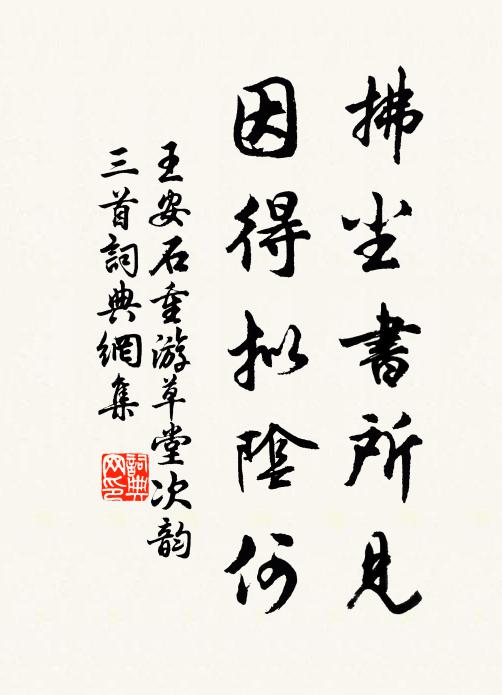 拂尘書所見
因得拟陰何
王安石重游草堂次韵
三首詞典網集
詞典
网印